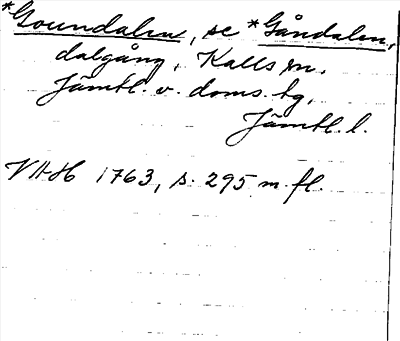 *Goundalen, se *Gåndalen,
dalgång, Kalls sn.
Jämtl. v. doms. tg.
Jämtl. l.
VAH 1763, s. 295 m. fl.